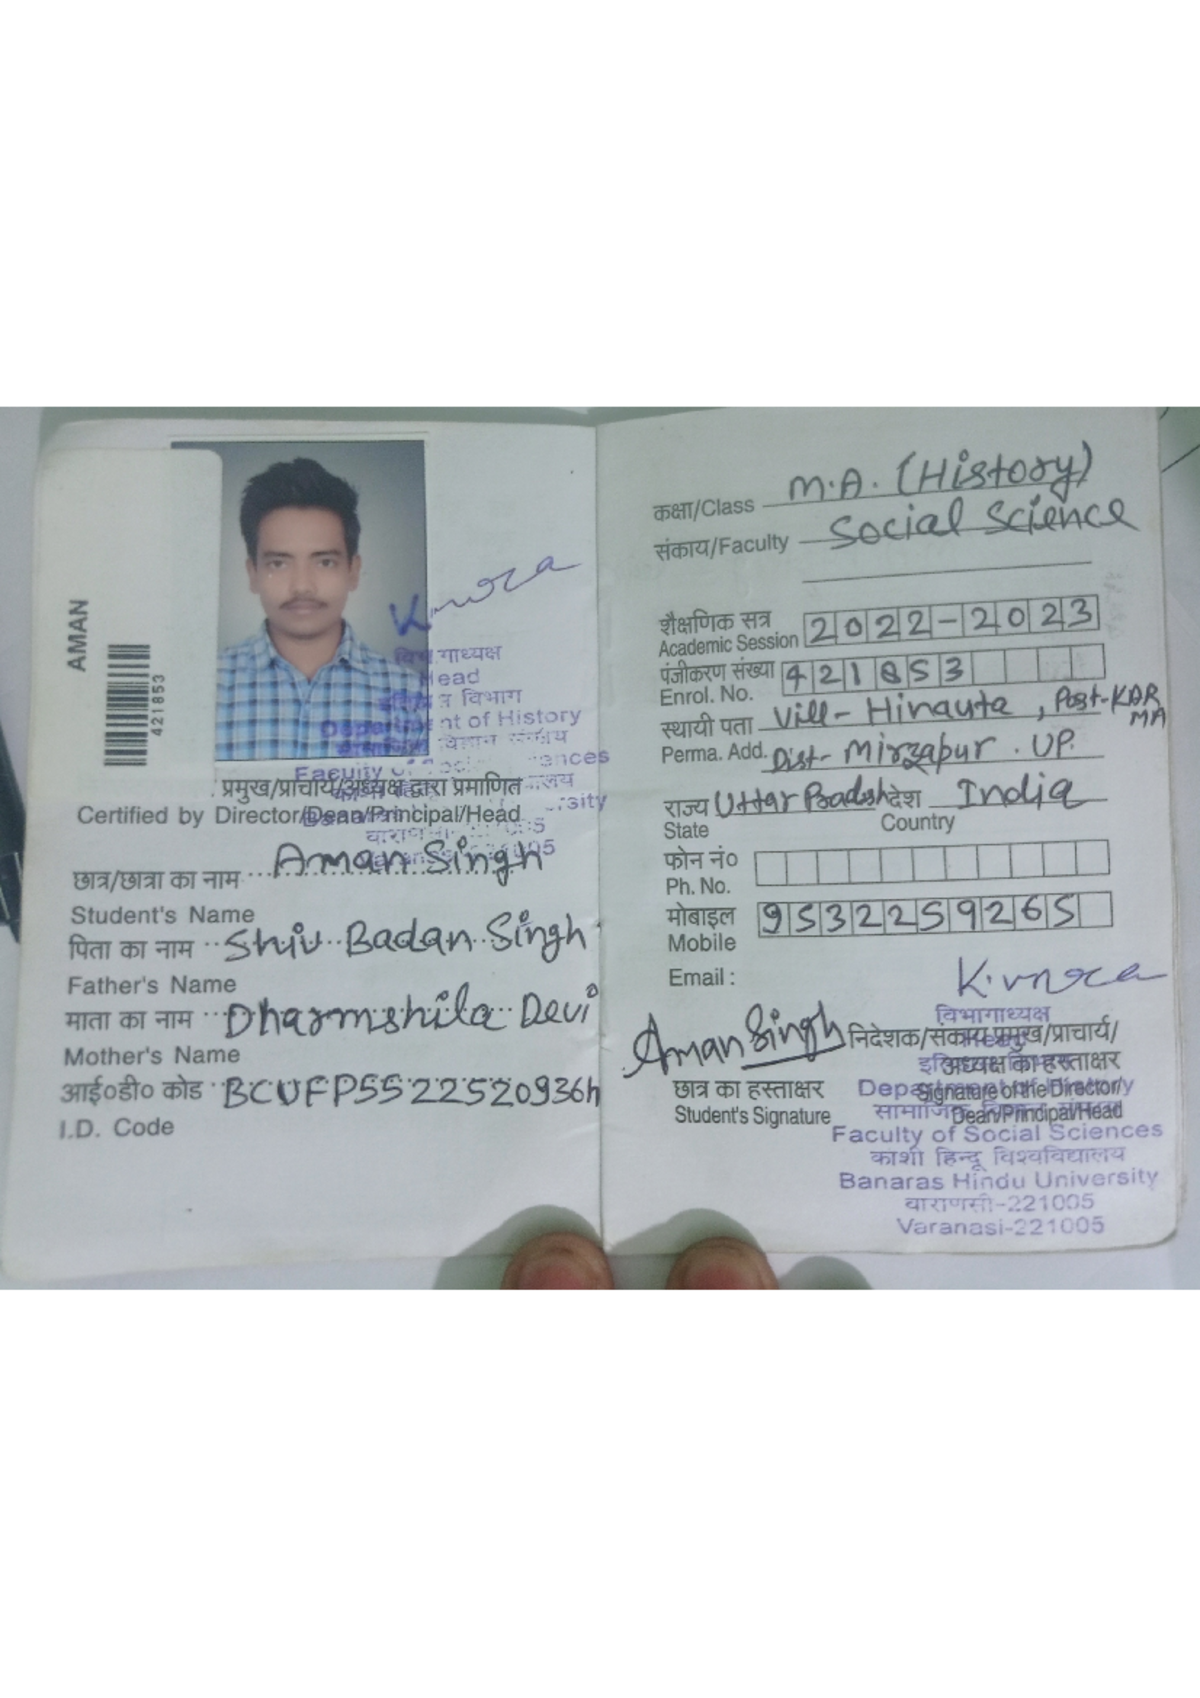 AMAN
421853
विभागाध्यक्ष
Head
विभाग
Department of History
सामाजिक विज्ञान संकाय
Faculty of Social Sciences
प्रमुख/प्राचार्य/अध्यक्ष द्वारा प्रमाणित
Certified by Director/Dean/Principal/Head
छात्र/छात्रा का नाम Aman Singh
Student's Name
पिता का नाम Shiv Badan Singh
Father's Name
माता का नाम Dharmshila Devi
Mother's Name
आई०डी० कोड BCUFP5522520936h
I.D. Code
कक्षा/Class M.A. (History)
संकाय/Faculty Social Science
शैक्षणिक सत्र 2022-2023
Academic Session
पंजीकरण संख्या 421853
Enrol. No.
स्थायी पता Vill- Hinauta, Post-KDR
MA
Perma. Add. Dist- Mirzapur. UP.
राज्य Uttar Pradesh देश India
State Country
फोन नं०
Ph. No.
मोबाइल 9532259265
Mobile
Email :
Aman Singh
निदेशक/संकाय प्रमुख/प्राचार्य/
अध्यक्ष का हस्ताक्षर
छात्र का हस्ताक्षर Signature of the Director/
Student's Signature Dean/Principal/Head
विभागाध्यक्ष
Department of History
सामाजिक
Faculty of Social Sciences
काशी हिन्दू विश्वविद्यालय
Banaras Hindu University
वाराणसी-221005
Varanasi-221005